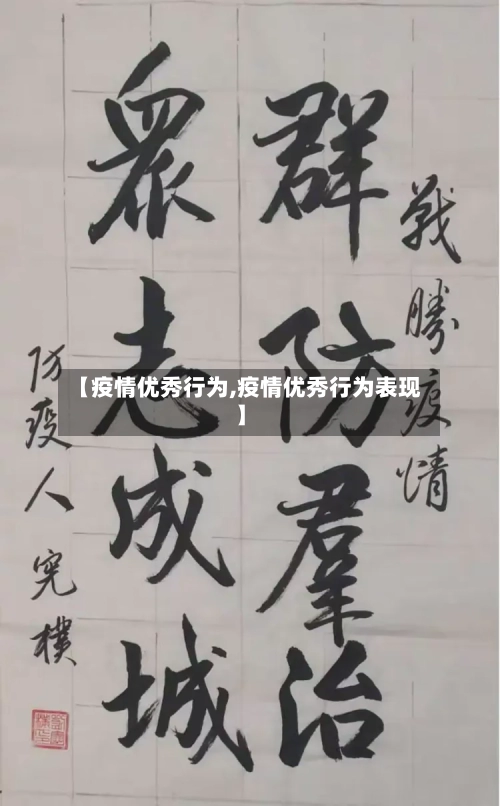 戰勝疫情
群防羣治
眾志成城
防疫人 完樸
【疫情优秀行为,疫情优秀行为表现
】